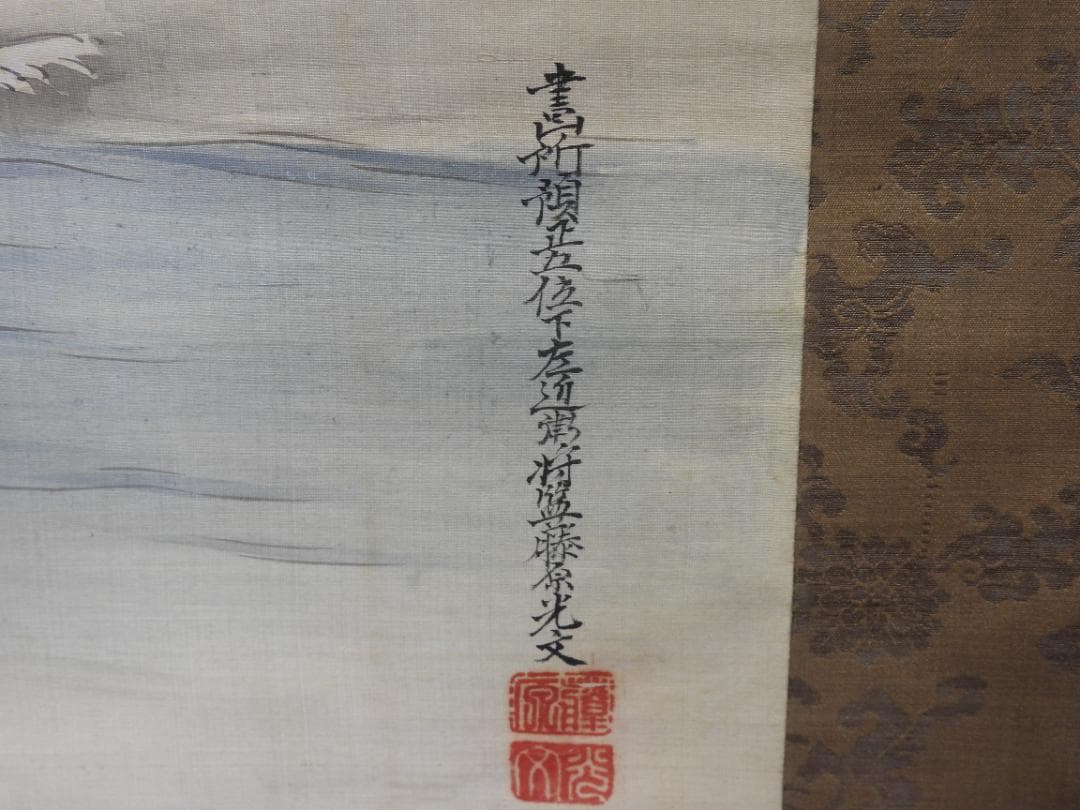 畫所預正五位下左近衛将監藤原光文
藤原
光文